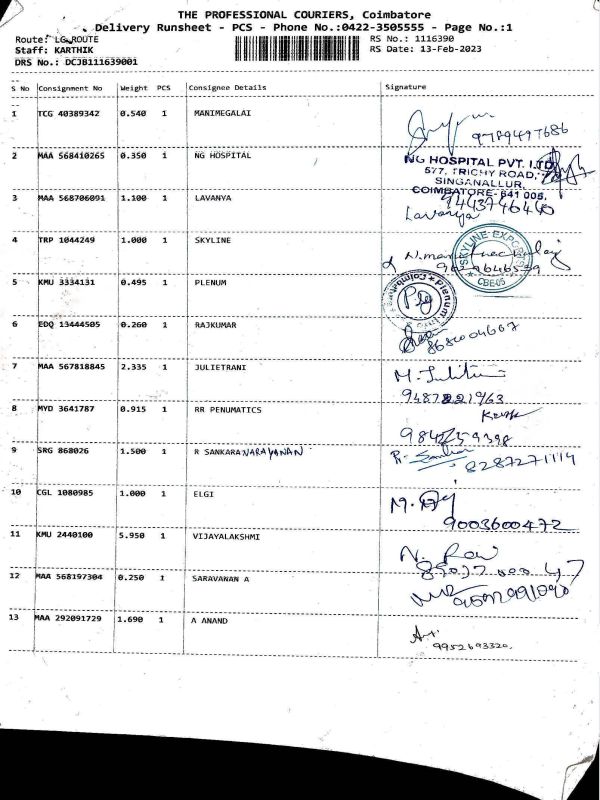 THE PROFESSIONAL COURIERS, Coimbatore
Delivery Runsheet - PCS - Phone No.:0422-3505555 - Page No.:1
Route: LG ROUTE RS No.: 1116390
Staff: KARTHIK RS Date: 13-Feb-2023
DRS No.: DCJB111639001
S No Consignment No Weight PCS Consignee Details Signature
1 TCG 40389342 0.540 1 MANIMEGALAI
9789497686
2 MAA 568410265 0.350 1 NG HOSPITAL NG HOSPITAL PVT. LTD
577, TRICHY ROAD,
SINGANALLUR,
COIMBATORE-641 005.
3 MAA 568706091 1.100 1 LAVANYA 9443746440
Lavanya
4 TRP 1044249 1.000 1 SKYLINE
SKYLINE EXPORTS
CBE05
5 KMU 3334131 0.495 1 PLENUM Plenum
Coimbatore
6 EDQ 13444505 0.260 1 RAJKUMAR
8680004667
7 MAA 567818845 2.335 1 JULIETRANI
9487821963
8 MYD 3641787 0.915 1 RR PENUMATICS
9842259398
9 SRG 868026 1.500 1 R SANKARANARAYANAN
8287271114
10 CGL 1080985 1.000 1 ELGI
9003600472
11 KMU 2440100 5.950 1 VIJAYALAKSHMI
12 MAA 568197304 0.250 1 SARAVANAN A
13 MAA 292091729 1.690 1 A ANAND
9952693320.